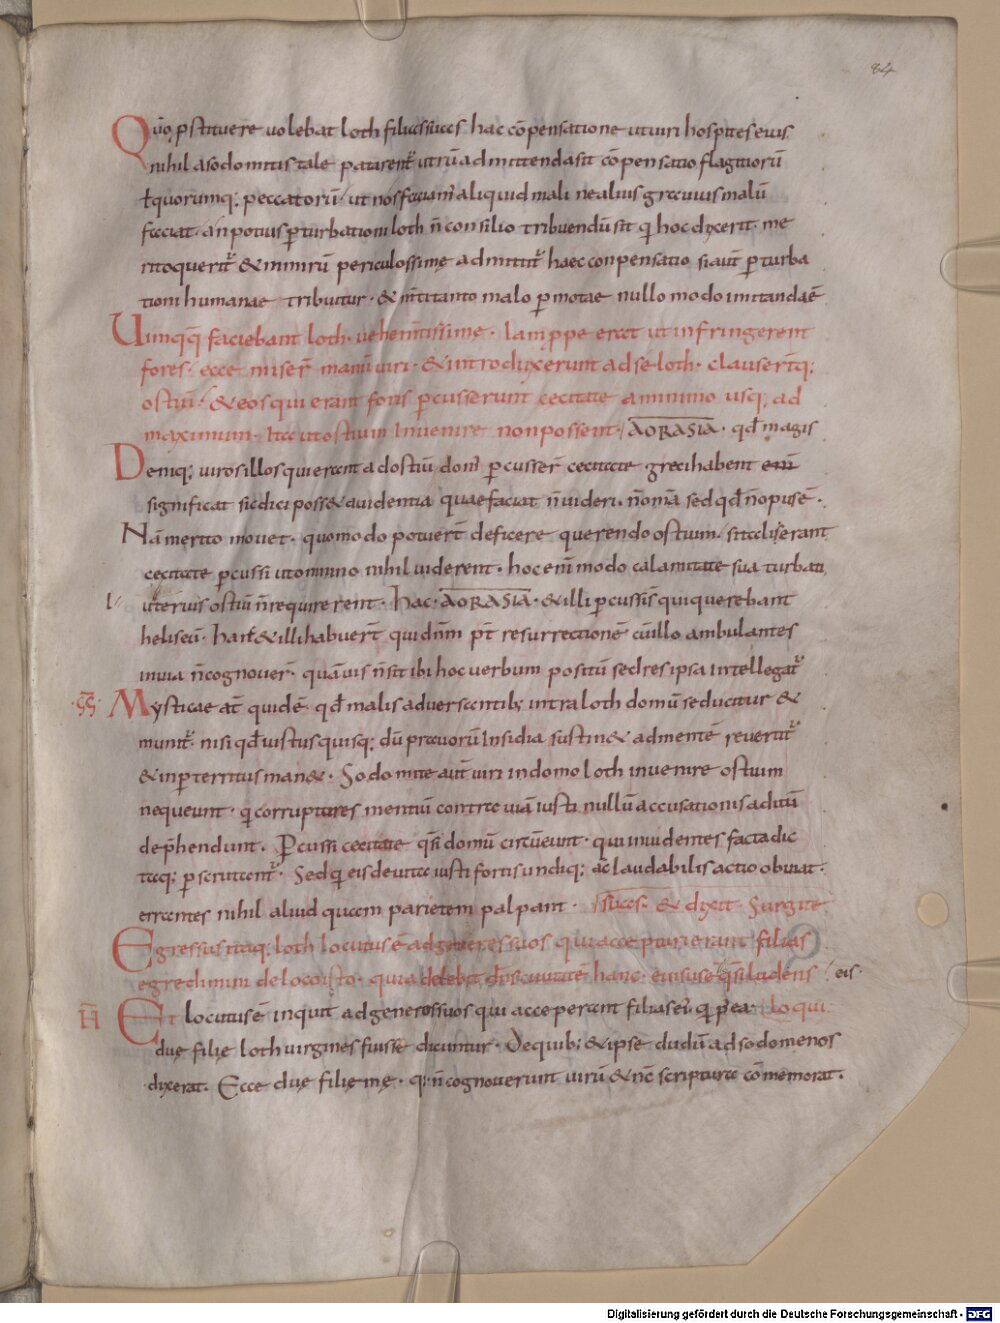 84
Quō p̄stituere uolebat loth filias suas hac cōpensatione ut uiri hospites eius
nihil a sodomitis tale paterent̄ utrū admittenda sit cōpensatio flagitiorū
ł quorumq; peccatorū ut nos faciam̄ aliquid mali ne alius grauius malū
faciat · an potius p̄turbationi loth ñ consilio tribuendū sit q̄ hoc dixerit · me
rito querit̄ & nimirū periculossime admittit̄ haec conpensatio si aut̄ p̄turba
tioni humanae tribuitur · & m̄ti tanto malo p̄motae nullo modo imitandaē
Uimq; faciebant loth · uehem̄tissime · Iam ppe erat ut infringerent
fores · ecce miser̄ manū uiri · & introduxerunt ad se loth · clauser̄tq;
ostiū · & eos qui erant foris p̄cusserunt cecitate a minimo usq; ad
maximum · Ita ut ostium Inuenire non possent · AORASIA · qd̄ magis
Deniq; uiros illos qui erant ad ostiū dom̄ p̄cusser̄ cecitate greci habent eni
significat si dici poss& auidentia quae faciat ñ uideri · ñ om̄a sed qd̄ ñ opus ē ·
Nā merito mouet · quomodo potuer̄t deficere querendo ostium · si tali erant
cecitate p̄cussi ut omnino nihil uiderent · hoc eni modo calamitate sua turbati
ut eius ostiū ñ requirerent · Hac · AORASIA · & illi p̄cussi s̄ qui querebant
heliseū · Hanc & illi habuer̄t qui dn̄m p̄t resurrectionē cū illo ambulantes
in uia ñ cognouer̄ · quāuis ñ sit ibi hoc uerbum positū sed res ipsa intellegat̄
·SS· Mysticae at̄ quidē qd̄ malis aduersantib; intra loth domū seducitur &
munit̄ · nisi qd̄ iustus quisq; dū prauorū Insidia sustin& ad mentē reuertit̄
& inp̄territus man& · Sodomite aut̄ uiri in domo loth inuenire ostium
nequeunt · q̄ corruptores mentiū contra uiā iusti nullū accusationis aditū
dep̄hendunt · P̄cussi cecitate q̄si domū circūeunt · qui inuidentes facta dic
taq; p̄scrutant̄ · Sed q̄ eis de uita iusti fortis undiq; ac laudabilis actio obuiat ·
errantes nihil aliud quam parietem palpant · suas · & dixit · Surgite
Egressus itaq; loth locutus ē ad generes suos qui accepturi erant filias
egredimini de loco isto · quia delebit dn̄s ciuitatē hanc · & uisus ē q̄si ludens eis ·
H̄ Et locutus ē inquit ad generos suos qui acceperant filias ei · q̄ p̄ea · loqui
due filie loth uirgines fuisse dicuntur · De quib; & ipse dudū ad sodomenos
dixerat · Ecce due filie me · q̄ ñ cognouerunt uirū & nc̄ scriptura cōmemorat ·
Digitalisierung gefördert durch die Deutsche Forschungsgemeinschaft - DFG